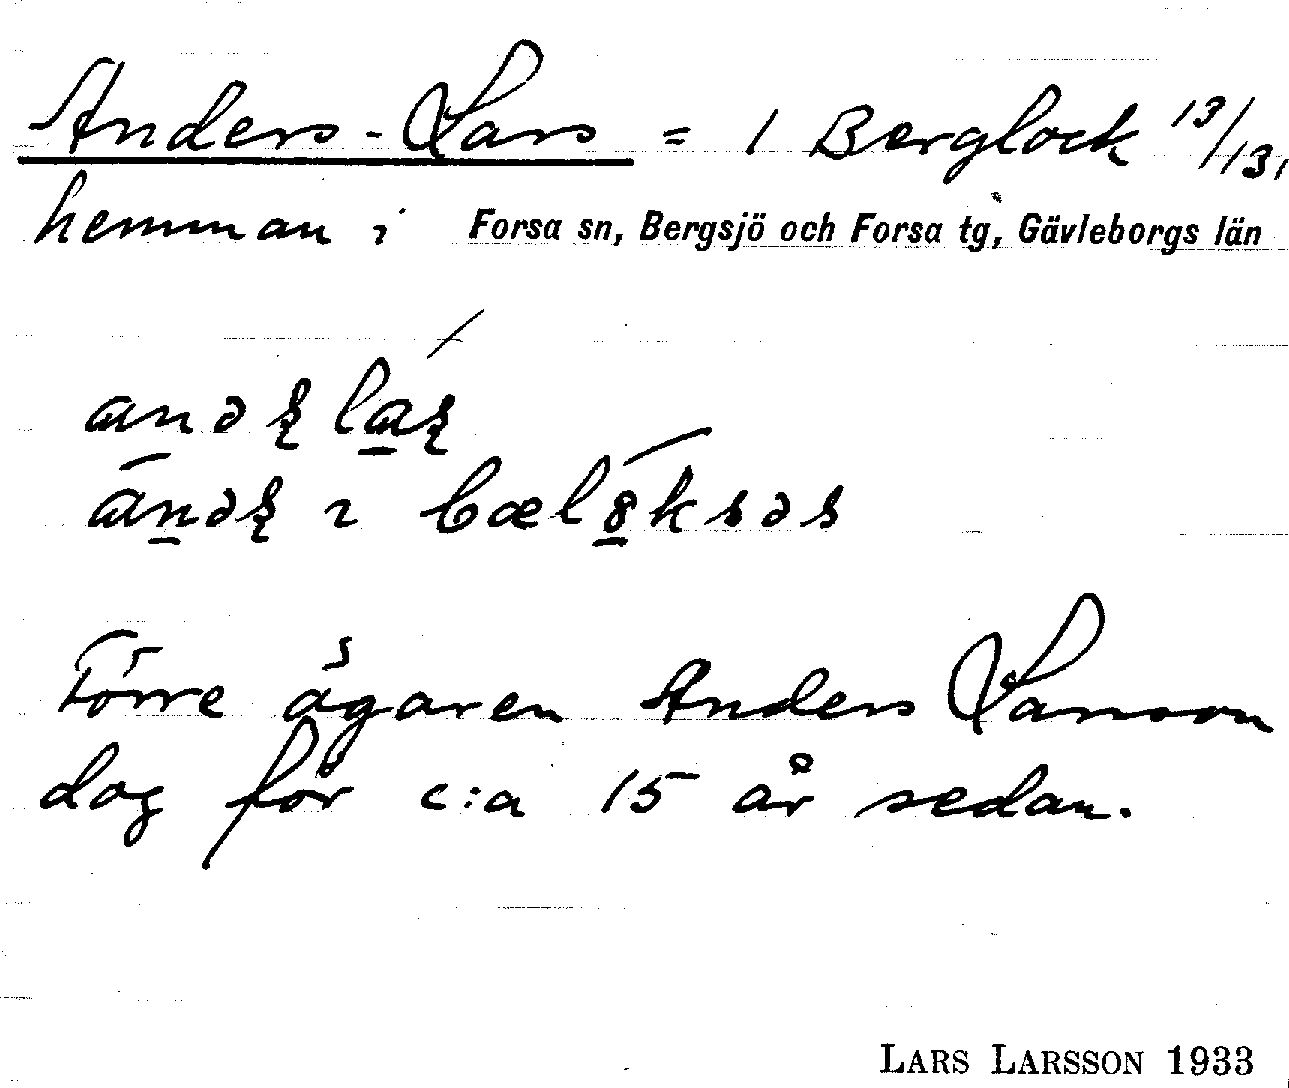 Anders-Lars = 1 Berglock 13/131,
hemman i Forsa sn, Bergsjö och Forsa tg, Gävleborgs län
Förre ägaren Anders Larsson
dog för c:a 15 år sedan.
LARS LARSSON 1933